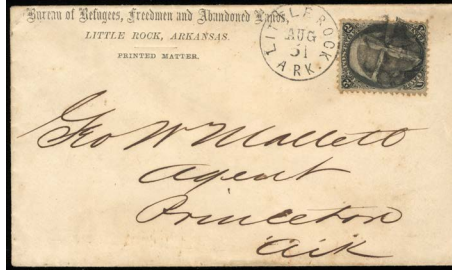 Bureau of Refugees, Freedmen and Abandoned Lands,
LITTLE ROCK, ARKANSAS.
PRINTED MATTER.
LITTLE ROCK
AUG
31
ARK.
Geo W Mallett
Agent
Princeton
Ark